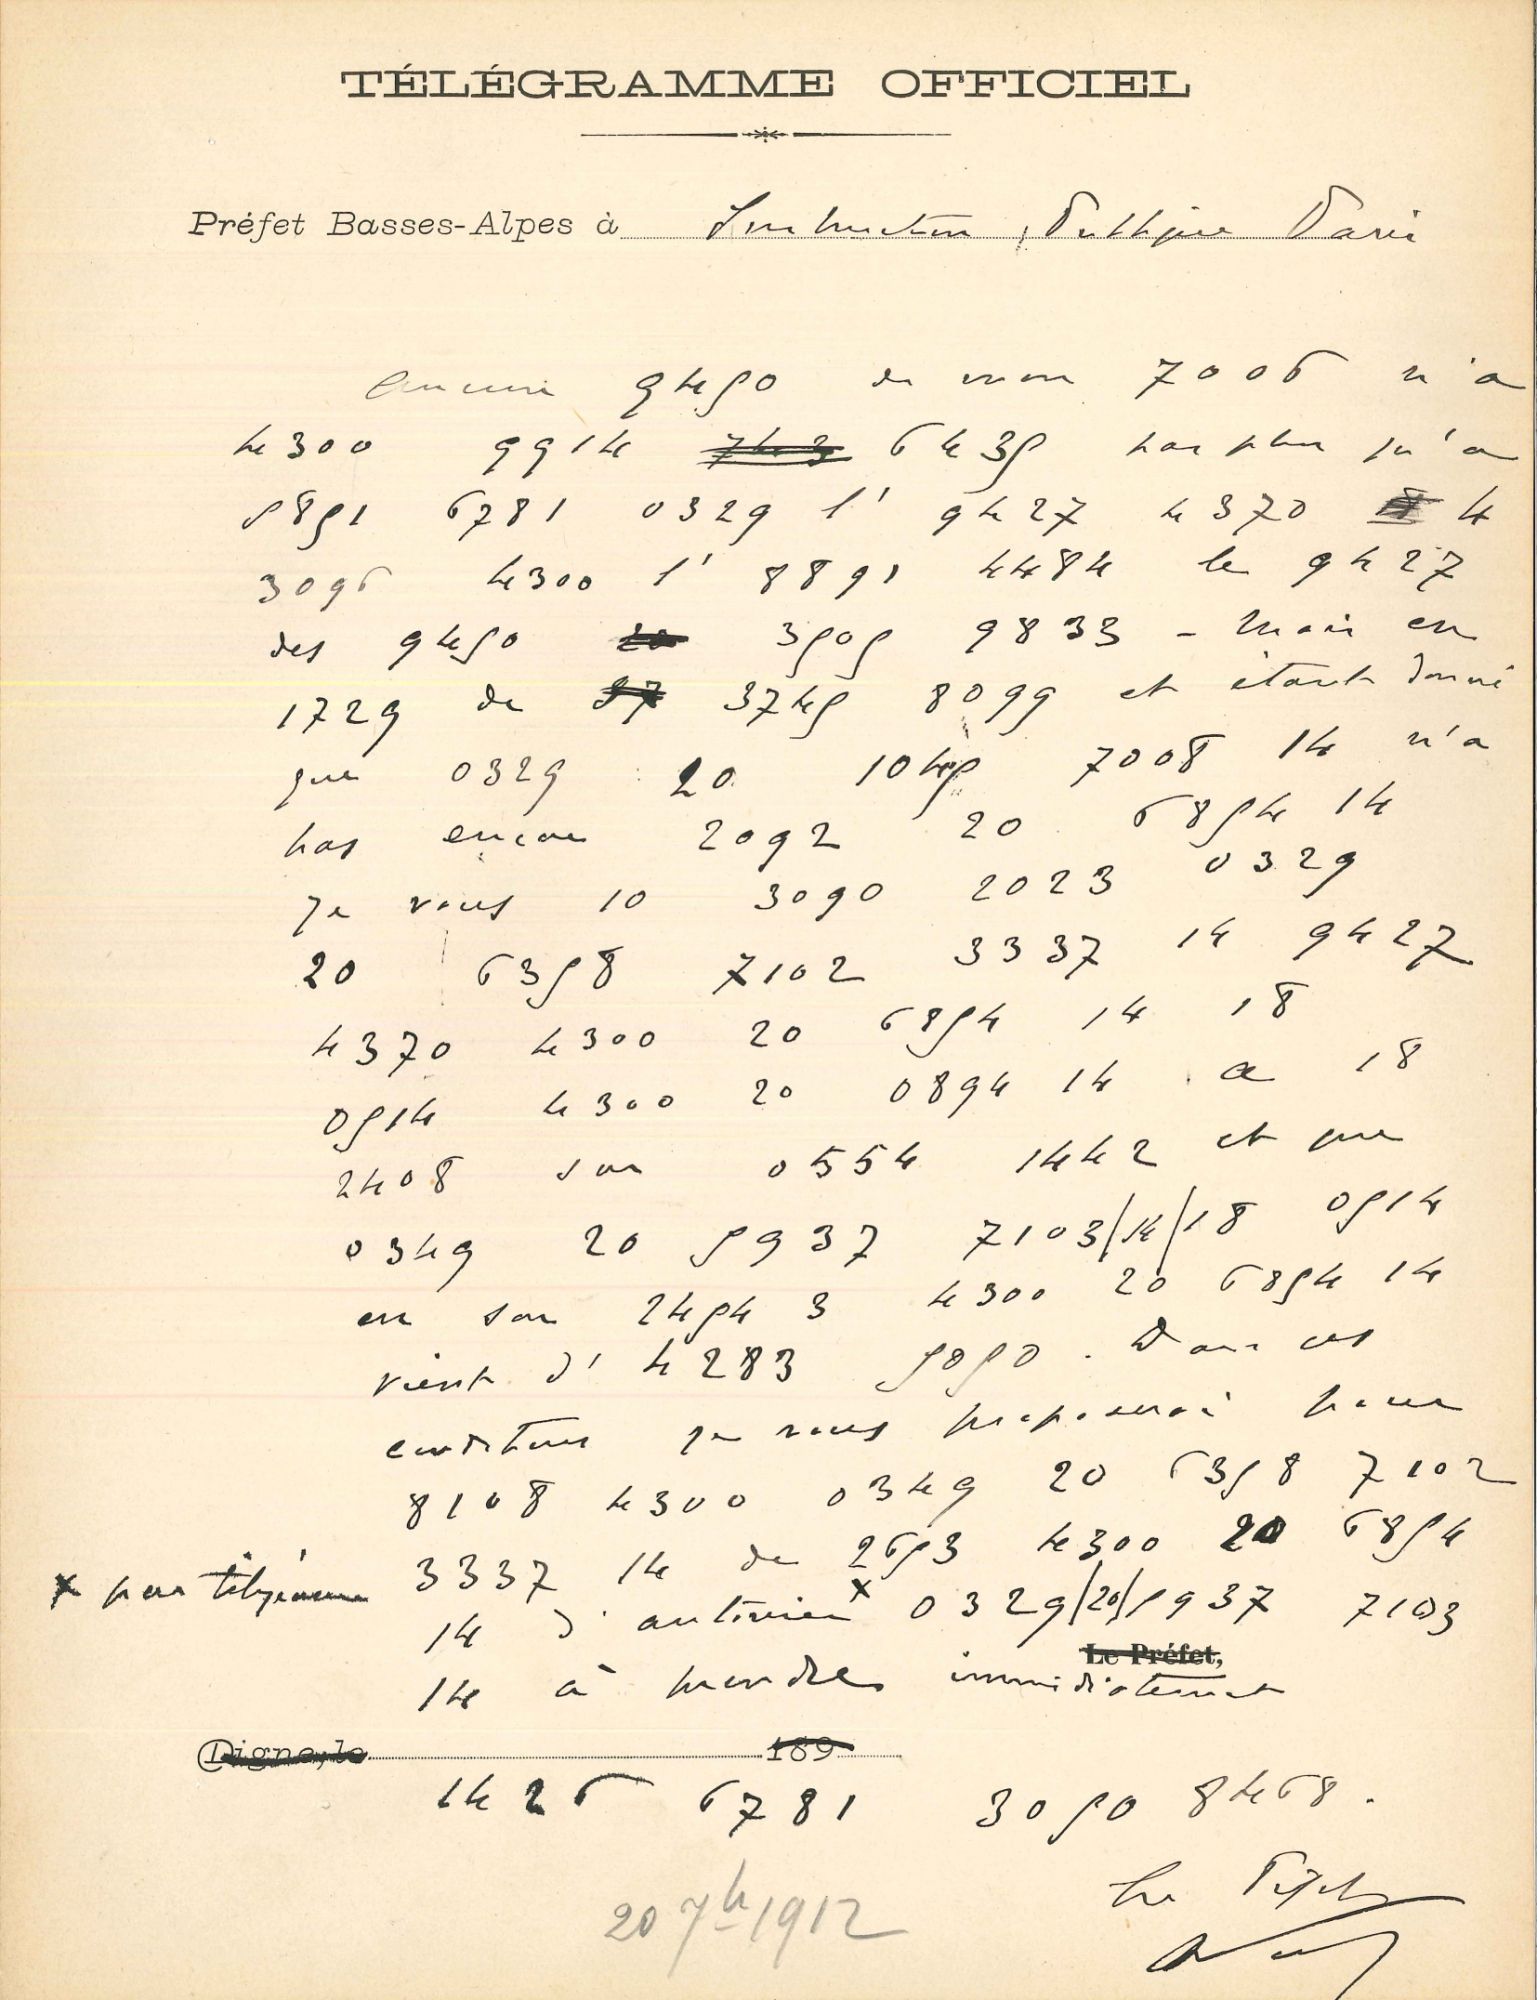 TÉLÉGRAMME OFFICIEL
Préfet Basses-Alpes à Instruction Publique Paris
aucune 9450 de mon 7006 n'a
4300 9914 6435 pas plus qu'a
5851 6781 0329 l' 9427 4370 4
3096 4300 l' 8891 4484 le 9427
des 9450 3505 9833 - Mais en
1729 de 3745 8099 et étant donné
que 0329 20 1045 7008 14 n'a
pas encore 2092 20 6854 14
je vous 10 3090 2023 0329
20 6358 7102 3337 14 9427
4370 4300 20 6854 14 18
0514 4300 20 0894 14 a 18
2408 son 0554 1442 et que
0349 20 5937 7103/14/18 0514
en son 2454 3 4300 20 6854 14
vient d' 4283 5050. Dans ces
conditions je vous proposerai pour
8108 4300 0349 20 6358 7102
3337 14 de 2653 4300 20 6854
x par télégramme
14 d'autoriser x 0329/20/5937 7103
Le Préfet,
14 à prendre immédiatement
Digne, le 189
1426 6781 3050 8468.
Le Préfet
20 7b 1912